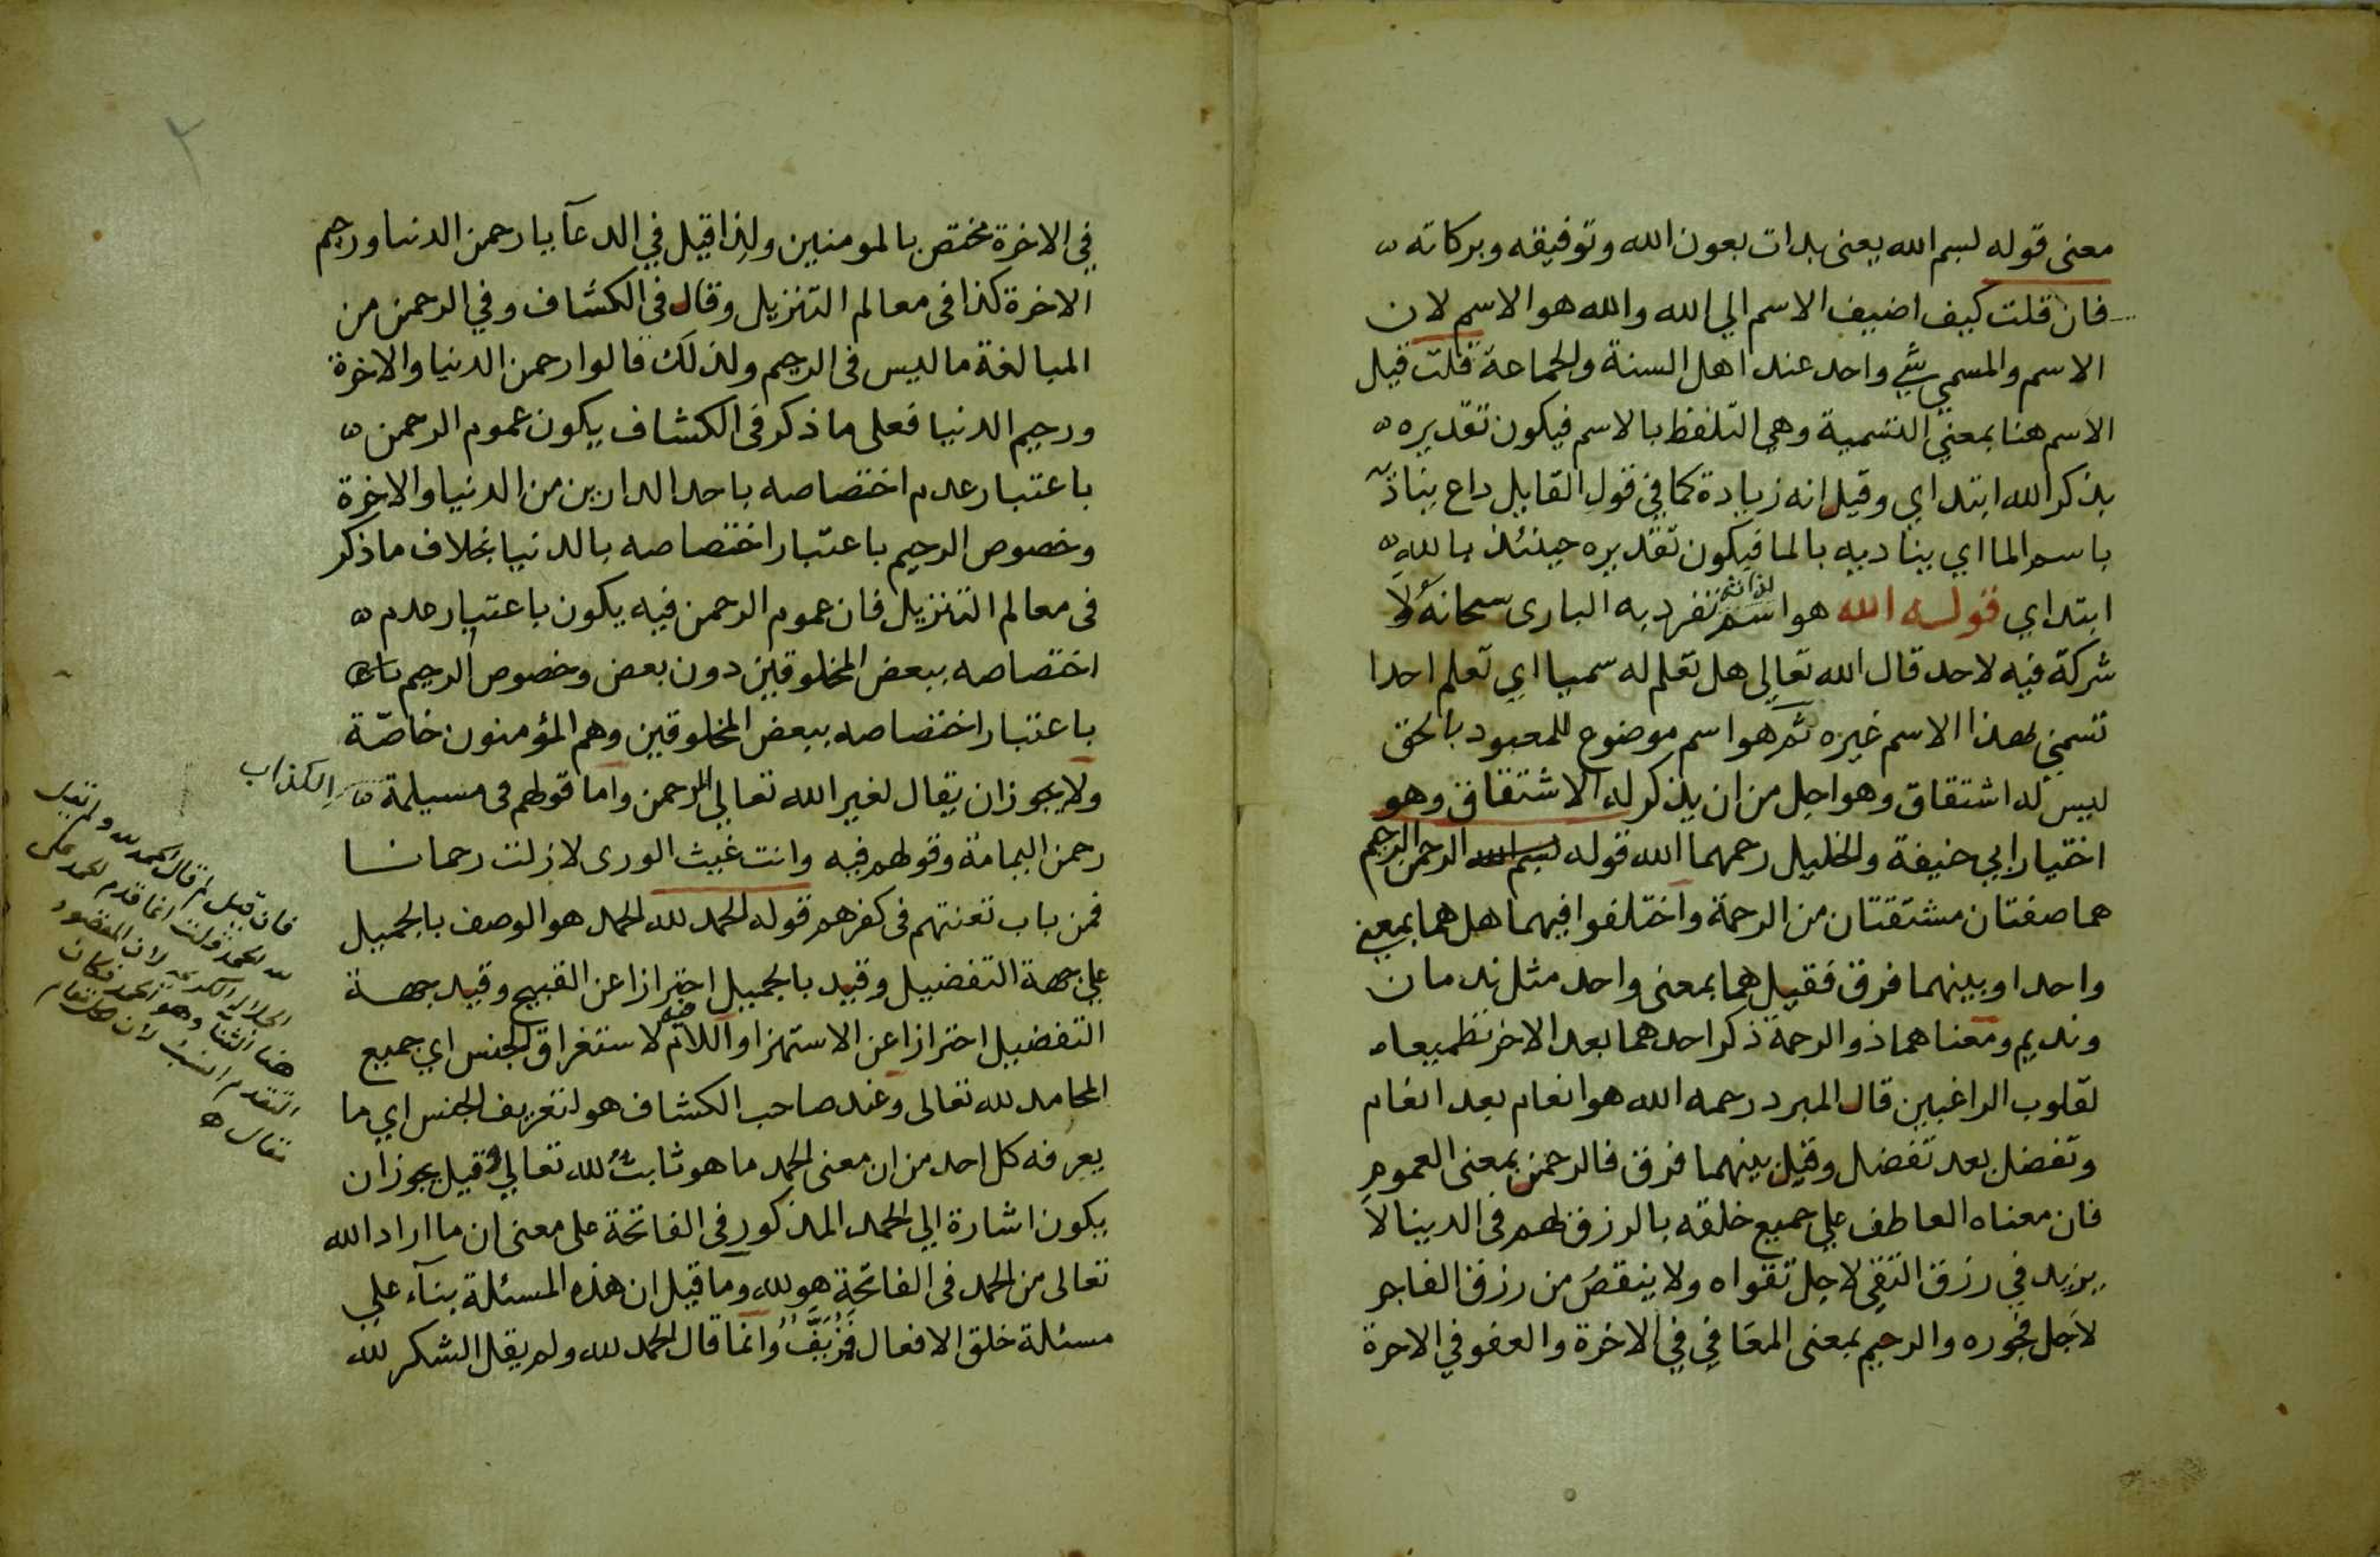 معنى قوله بسم الله يعنى بدات بعون الله وتوفيقه وبركاته
فان قلت كيف اضيف الاسم الي الله والله هو الاسم لان
الاسم والمسمي شئ واحد عند اهل السنة والجماعة قلت قيل
الاسم هنا بمعني التسمية وهي التلفظ بالاسم فيكون تقديره
بذكر الله ابتداي وقيل انه زيادة كما في قول القايل داع يناديه
باسم الما اي يناديه بالما فيكون تقديره حينئذ بالله
ابتداي قوله الله هو اسم لذاته تفرد به البارى سبحانه ولا
شركة فيه لاحد قال الله تعالي هل تعلم له سميا اي تعلم احدا
تسمي بهذا الاسم غيره ثم هو اسم موضوع للمعبود بالحق
ليس له اشتقاق وهو اجل من ان يذكر له الاشتقاق وهو
اختيار ابي حنيفة والخليل رحمهما الله قوله بسم الله الرحمن الرحيم
هما صفتان مشتقتان من الرحمة واختلفوا فيهما هل هما بمعني
واحد او بينهما فرق فقيل هما بمعنى واحد مثل ندمان
ونديم ومعناهما ذو الرحمة ذكر احدهما بعد الاخر تطميعا
لقلوب الراغبين قال المبرد رحمه الله هو انعام بعد انعام
وتفضل بعد تفضل وقيل بينهما فرق فالرحمن بمعنى العموم
فان معناه العاطف علي جميع خلقه بالرزق لهم فى الدينا لا
يزيد في رزق التقي لاجل تقواه ولا ينقص من رزق الفاجر
لاجل فجوره والرحيم بمعنى المعافي في الاخرة والعفو في الاخرة
٢
في الاخرة مختص بالمومنين ولذا قيل في الدعآ يا رحمن الدنيا ورحيم
الاخرة كذا فى معالم التنزيل وقال فى الكشاف وفي الرحمن من
المبالغة ما ليس فى الرحيم ولذلك قالوا رحمن الدنيا والاخرة
ورحيم الدنيا فعلى ما ذكر فى الكشاف يكون عموم الرحمن
باعتبار عدم اختصاصه باحد الدارين من الدنيا والاخرة
وخصوص الرحيم باعتبار اختصاصه بالدنيا بخلاف ما ذكر
فى معالم التنزيل فان عموم الرحمن فيه يكون باعتبار عدم
اختصاصه ببعض المخلوقين دون بعض وخصوص الرحيم
باعتبار اختصاصه ببعض المخلوقين وهم المؤمنون خاصّة
ولا يجوز ان يقال لغير الله تعالي الرحمن واما قولهم فى مسيلمة الكذاب
رحمن اليمامة وقولهم فيه وانت غيث الورى لا زلت رحمانا
فمن باب تعنتهم فى كفرهم قوله الحمد لله الحمد هو الوصف بالجميل
علي جهة التفضيل وقيد بالجميل احترازا عن القبيح وقيد بجهة
التفضيل احترازا عن الاستهزا واللام فيه لاستغراق الجنس اي جميع
المحامد لله تعالى وعند صاحب الكشاف هو لتعريف الجنس اي ما
يعرفه كل احد من ان معنى الحمد ما هو ثابت لله تعالي وقيل يجوز ان
يكون اشارة الي الحمد المذكور فى الفاتحة على معنى ان ما اراد الله
تعالى من الحمد فى الفاتحة هو لله وما قيل ان هذه المسئلة بنآء علي
مسئلة خلق الافعال فمزيف وانما قال الحمد لله ولم يقل الشكر لله
فان قيل لم قال الحمد لله ولم يقل
لله الحمد قلت انما قدم الحمد على
الكريمة لان المقصود
هنا الثنا وهو الحمد فكان
التقديم انسب لان
مقال